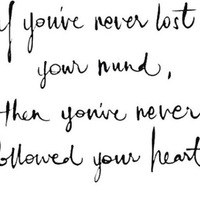 If you've never lost
your mind,
then you've never
followed your heart